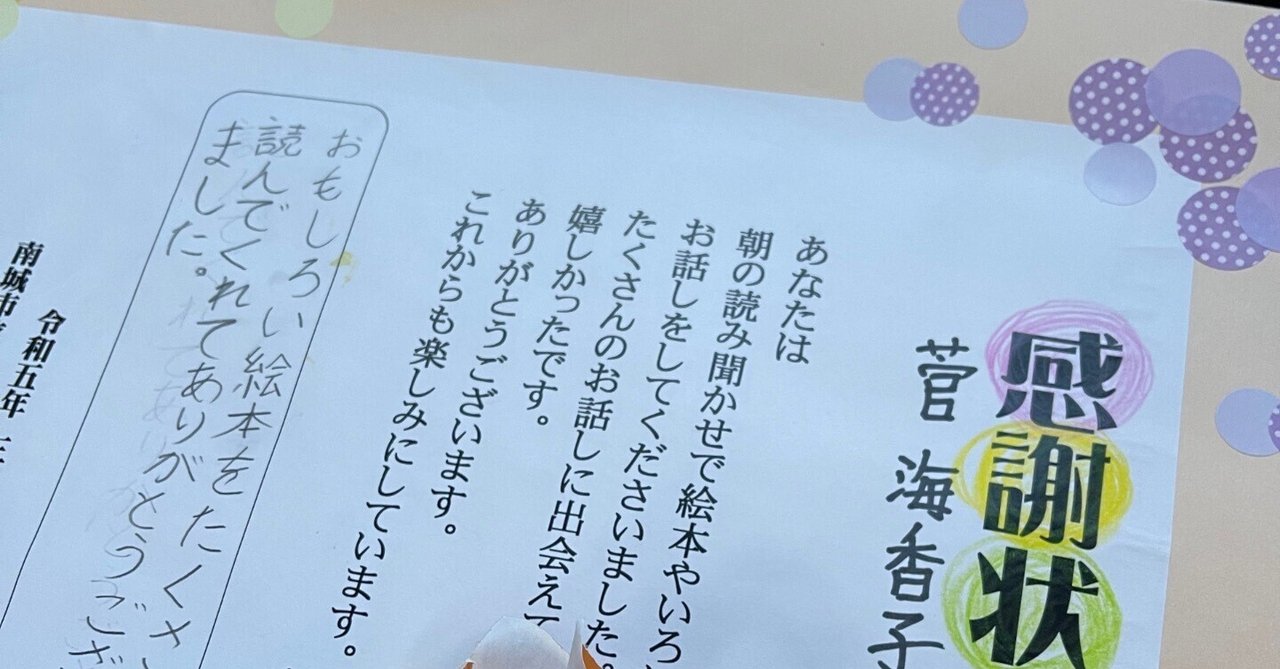 感謝状
菅 海香子
あなたは
朝の読み聞かせで絵本やいろ
お話しをしてくださいました。
たくさんのお話しに出会えて
嬉しかったです。
ありがとうございます。
これからも楽しみにしています。
おもしろい絵本をたくさ
読んでくれてありがとうござ
ました。
令和五年
南城市